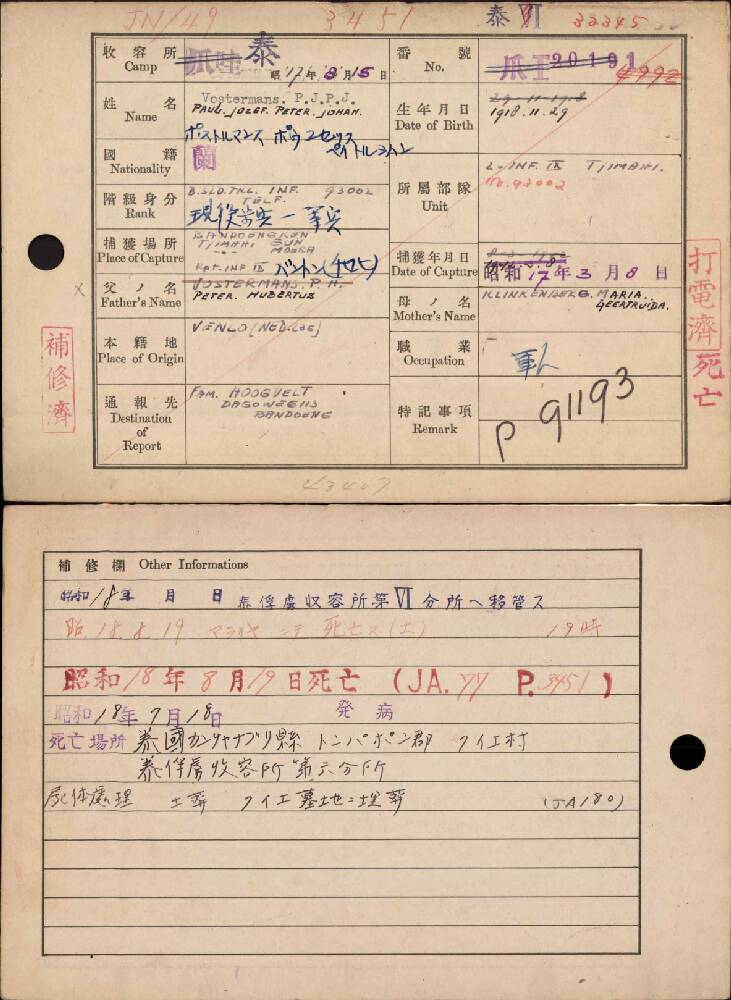 JN/49 3451 泰 VI 33345
収容所 Camp 爪哇 泰 昭17年8月15日
番號 No. 爪工 20191 4992
姓名 Name Vostermans. P.J.P.J.
PAUL. JOZEF. PETER. JOHAN.
生年月日 Date of Birth 29-11-1918
1918.11.29
國籍 Nationality 蘭
階級身分 Rank B.SLD.TKL. INF. 93002
TELF.
現役
所屬部隊 Unit L-INF. IX TJIMAHI.
no. 93002
捕獲場所 Place of Capture BANDOENG KON
TJIMAHI GUN
Kpt. INF IX バンドン
捕獲年月日 Date of Capture 昭和17年3月8日
父ノ名 Father's Name VOSTERMANS. P. H.
PETER. HUBERTUS
母ノ名 Mother's Name KLINKENBERG. MARIA.
GEERTRUIDA.
本籍地 Place of Origin VENLO (NED.
職業 Occupation 軍人
通報先 Destination of Report FAM. HOOGVELT
DAGOWEG 113
BANDOENG
特記事項 Remark P 91193
補修濟
打電濟 死亡
43407
補修欄 Other Informations
昭和18年 月 日 泰俘虜収容所第VI分所ヘ移管ス
昭 18.8.19 ニテ 死亡ス(土) 19時
昭和18年8月19日死亡 (JA.77 P.3451)
昭和18年7月18日 発病
死亡場所 泰國カンチャナブリ縣 トンパポン郡 クイエ村
泰俘虜收容所第六分所
死体處理 土葬 クイエ墓地ニ埋葬 (JA180)